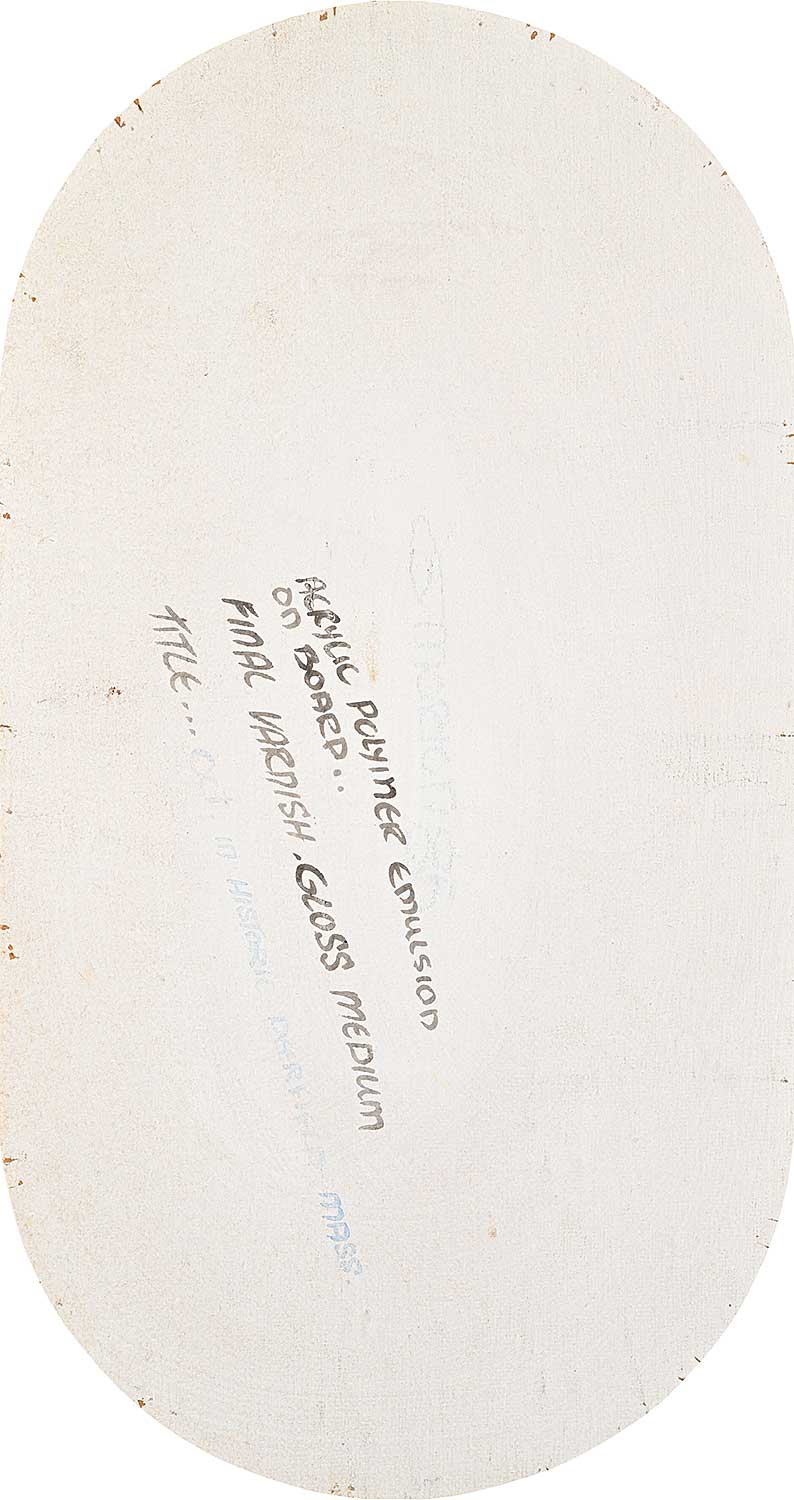 ACRYLIC POLYIMER EMULSION
ON BOARD..
FINAL VARNISH. GLOSS MEDIUM
TITLE... OCT. IN HISTORIC DEERFIELD MASS.